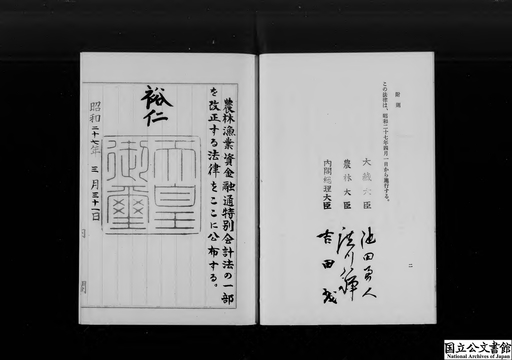 附則
この法律は、昭和二十七年四月一日から施行する。
大藏大臣 池田勇人
農林大臣 廣川弘禅
内閣総理大臣 吉田茂
二
農林漁業資金融通特別会計法の一部
を改正する法律をここに公布する。
裕仁
天皇御璽
昭和二十七年三月三十一日
国立公文書館
National Archives of Japan